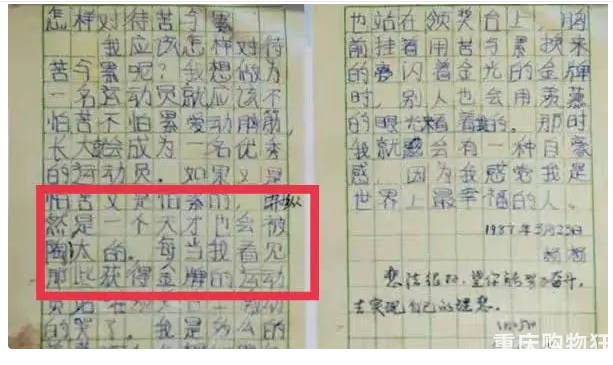 怎样对待苦与累
我应该怎样对待
苦与累呢?我想做为
一名运动员就应该不
怕苦不怕累爱动脑筋,
长大才会成为一名优秀
的运动员。如果又是
怕苦又是怕累的,
然是一个天才也会被
陶汰的。每当我看见
那些获得金牌的运动
员站在领奖台上
的哭了。我是多么的
也站在领奖台上,胸
前挂着用苦与累换来
的闪着金光的金牌
时,别人也会用羡慕
的眼光看着我的。那时
我就会有一种自豪
感,因为我感觉我是
世界上最幸福的人。
1987年3月25日
杨
想法很好,望你能努力奋斗,
去实现自己的理想。
重庆购物狂